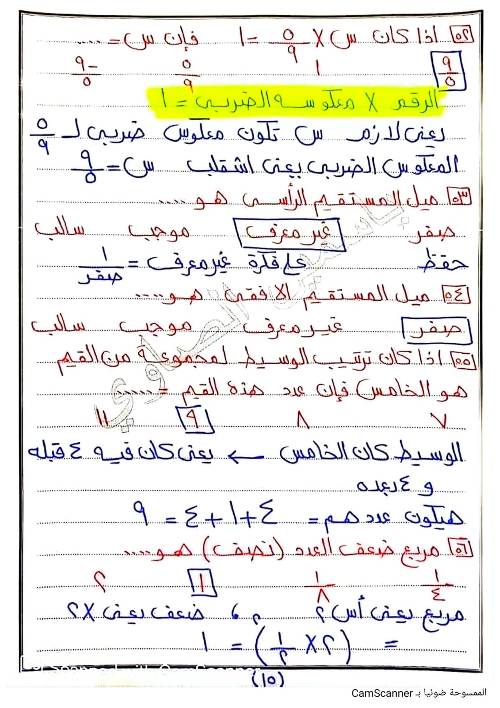 ٥٢ اذا كان س × ٥/٩ = ١ فإن س = ....
٩/٥ ١ ٥/٩ ٩-/٥
الرقم × معكوسه الضربى = ١
يعنى لازم س تكون معكوس ضربى لـ ٥/٩
المعكوس الضربى يعنى اشقلب س = ٩/٥
٥٣ ميل المستقيم الرأسى هو ....
صفر غير معرف موجب سالب
حفظ على فكرة غير معرف = ١/صفر
٥٤ ميل المستقيم الافقى هو ....
صفر غير معرف موجب سالب
٥٥ اذا كان ترتيب الوسيط لمجموعة من القيم
هو الخامس فإن عدد هذه القيم = ......
٧ ٨ ٩ ١١
الوسيط كان الخامس ← يعنى كان فيه ٤ قبله
و ٤ بعده
هيكون عددهم = ٤+١+٤ = ٩
٥٦ مربع ضعف العدد (نصف) هو ....
١/٤ ١/٨ ١ ٢
مربع يعنى أس ٢ ، ضعف يعنى ×٢
= (٢×١/٢)٢ = ١
(١٥)
الممسوحة ضوئيا بـ CamScanner